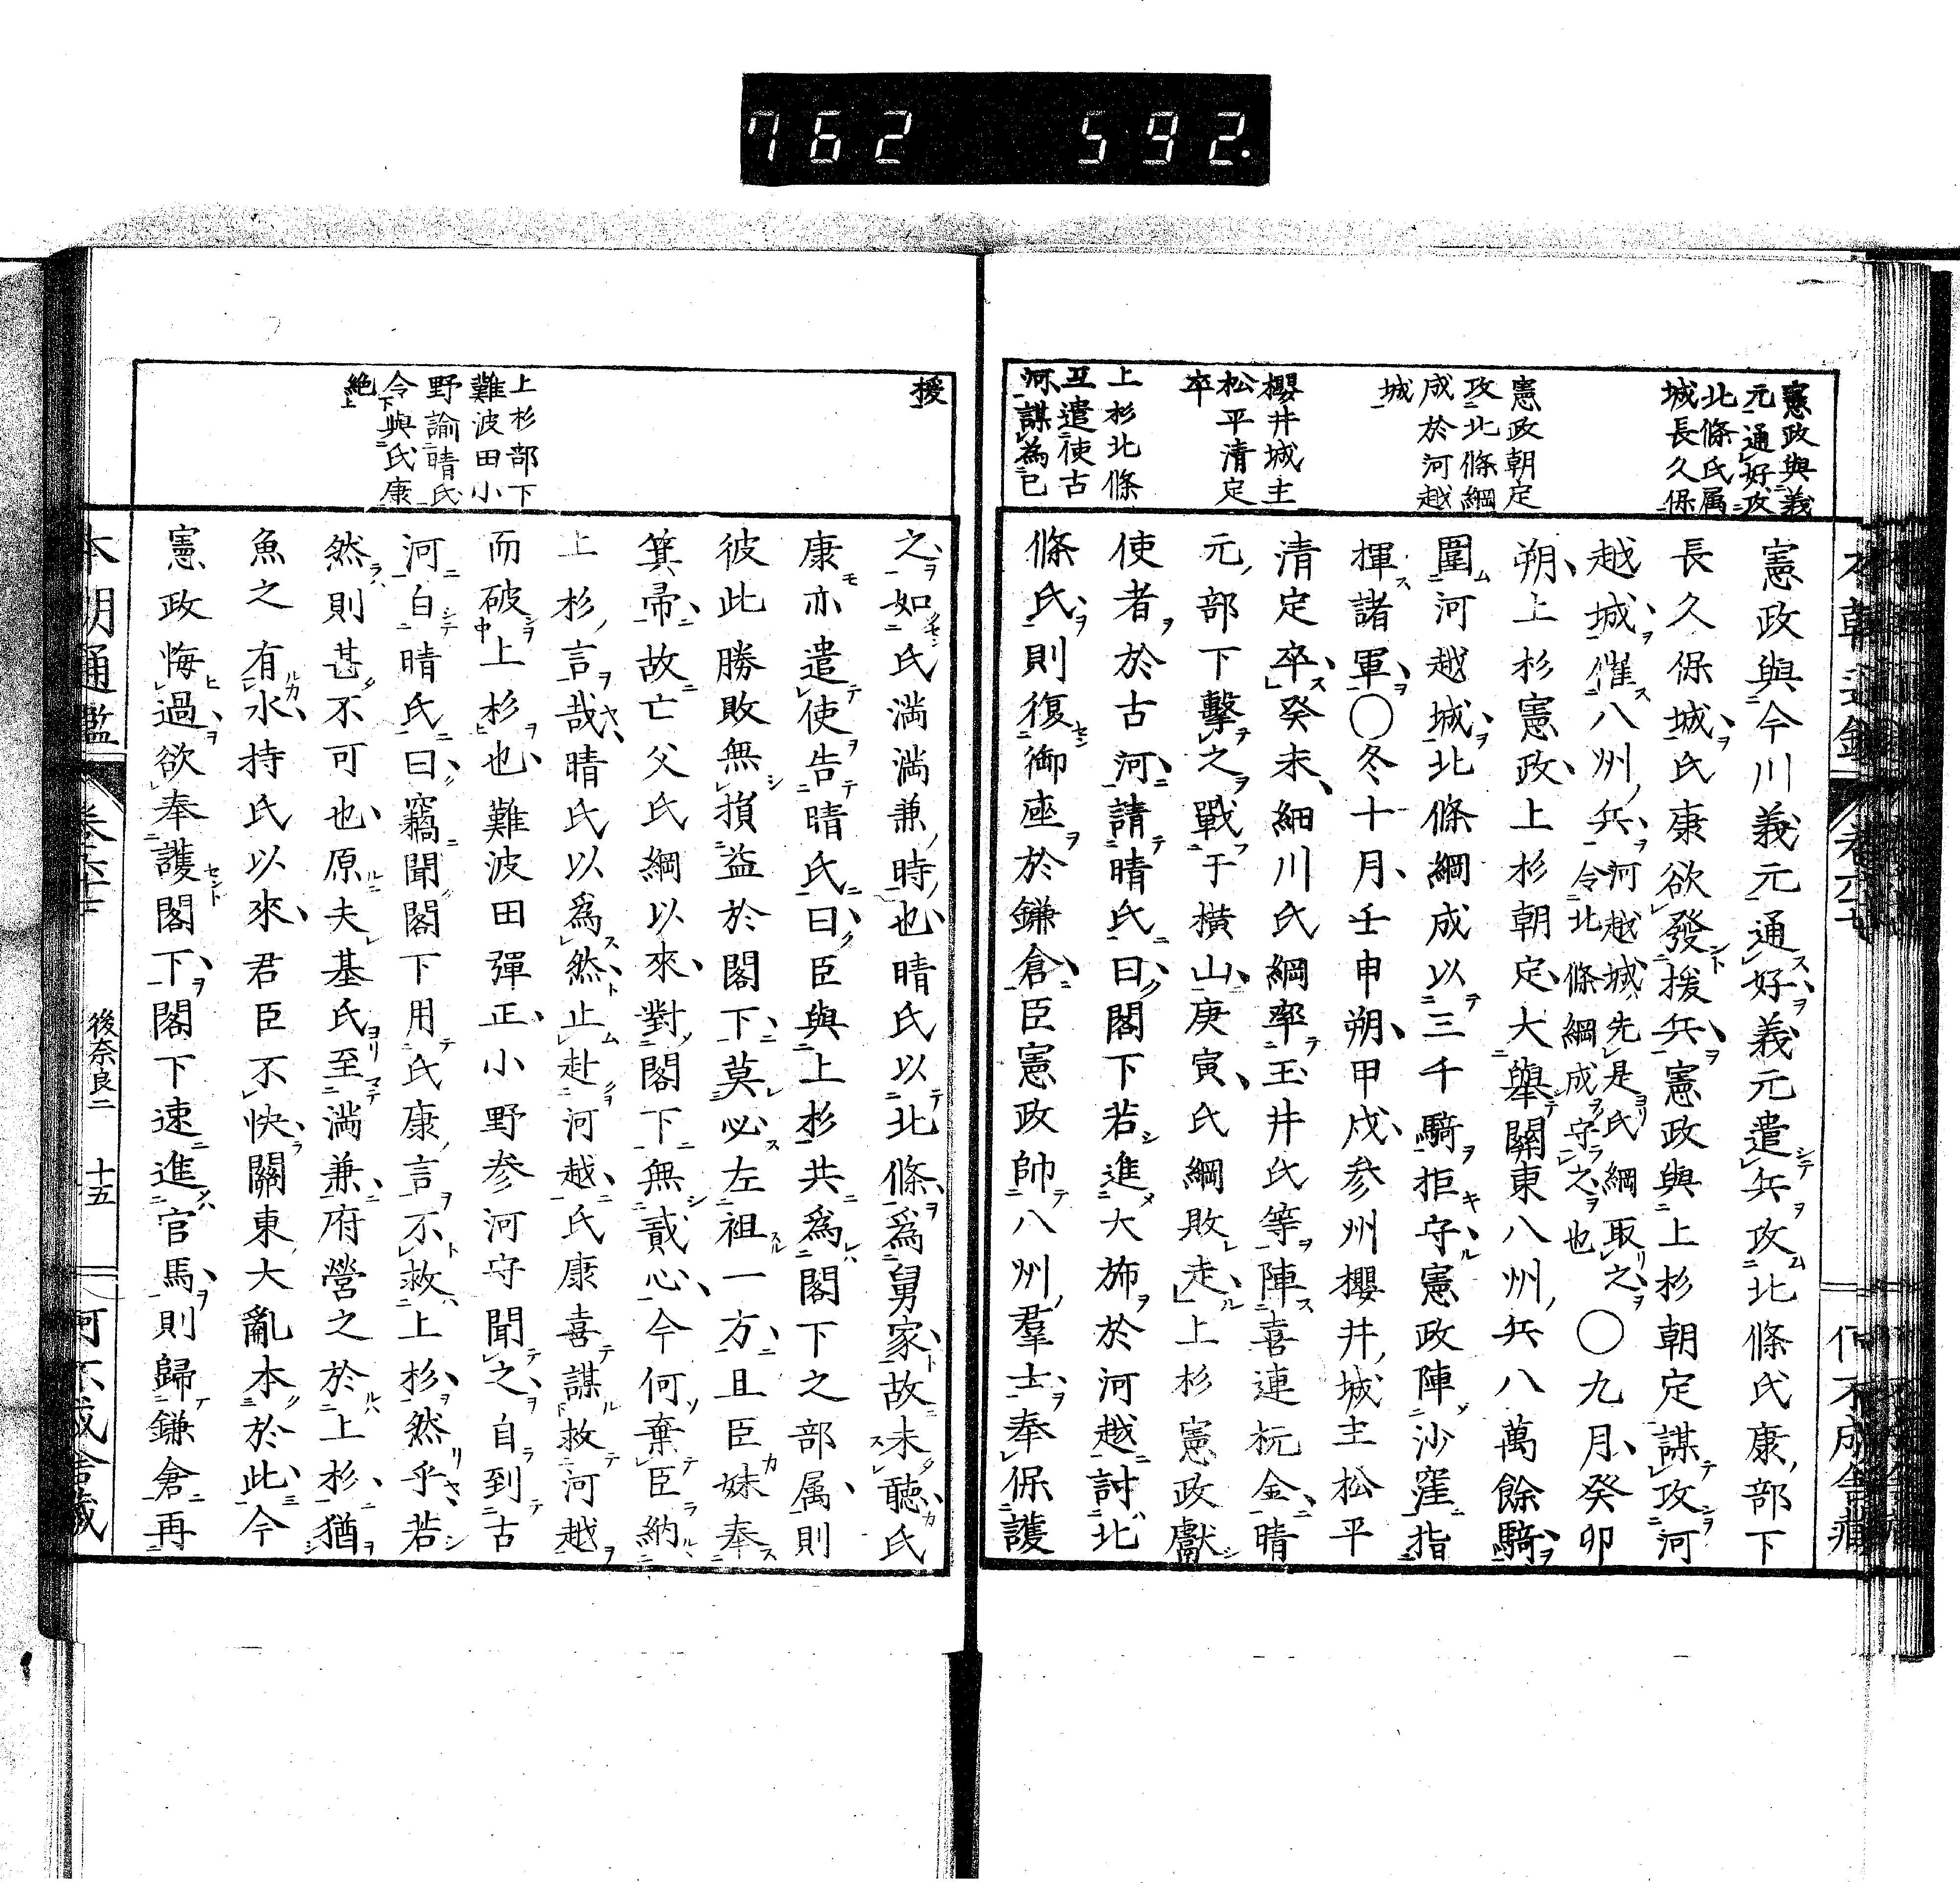 762 592.
憲政與義
元通好攻
北條氏属
城長久保
憲政朝定
攻北條綱
成於河越
城
櫻井城主
松平清定
卒
上杉北條
互遣使古
河謀為已
援
上杉部下
難波田小
野諭晴氏
令與氏康
絶
憲政與今川義元通好義元遣兵攻北條氏康部下
長久保城氏康欲發援兵憲政與上杉朝定謀攻河
越城催八州兵河越城先是氏綱取之令北條綱成守之也〇九月癸卯
朔上杉憲政上杉朝定大擧關東八州兵八萬餘騎
圍河越城北條綱成以三千騎拒守憲政陣沙窪指
揮諸軍〇冬十月壬申朔甲戌參州櫻井城主松平
清定卒癸未細川氏綱率玉井氏等陣喜連杬金晴
元部下擊之戰于横山庚寅氏綱敗走上杉憲政獻
使者於古河請晴氏曰閣下若進大斾於河越討北
條氏則復御座於鎌倉臣憲政帥八州羣士奉保護
之如氏満満兼時也晴氏以北條爲舅家故未聽氏
康亦遣使告晴氏曰臣與上杉共爲閣下之部属則
彼此勝敗無損益於閣下莫必左袒一方且臣妹奉
箕帚故亡父氏綱以來對閣下無貳心今何棄臣納
上杉言哉晴氏以爲然止赴河越氏康喜謀救河越
而破上杉也難波田彈正小野參河守聞之自到古
河白晴氏曰竊聞閣下用氏康言不救上杉然乎若
然則甚不可也原夫基氏至満兼府營之於上杉猶
魚之有水持氏以來君臣不快關東大亂本於此今
憲政悔過欲奉護閣下閣下速進官馬則歸鎌倉再
本朝通鑑 後奈良二 十五